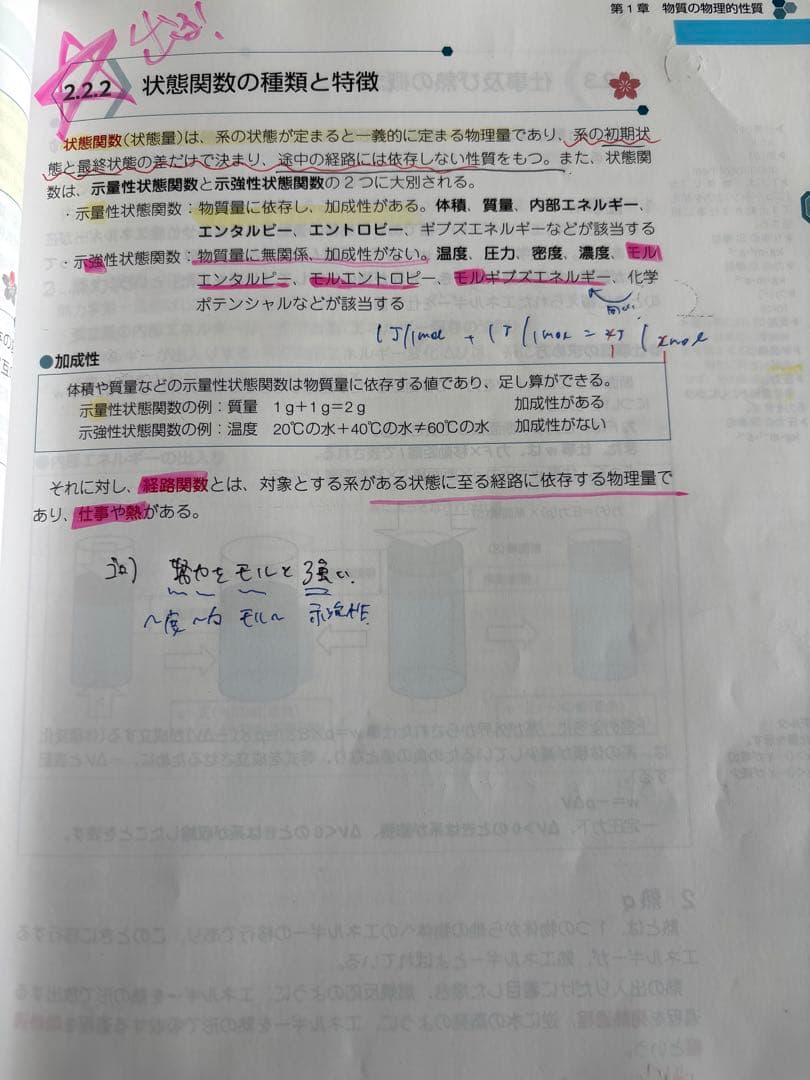 第1章 物質の物理的性質
出る!
2.2.2 状態関数の種類と特徴
状態関数(状態量)は、系の状態が定まると一義的に定まる物理量であり、系の初期状
態と最終状態の差だけで決まり、途中の経路には依存しない性質をもつ。また、状態関
数は、示量性状態関数と示強性状態関数の2つに大別される。
・示量性状態関数:物質量に依存し、加成性がある。体積、質量、内部エネルギー、
エンタルピー、エントロピー、ギブズエネルギーなどが該当する
・示強性状態関数:物質量に無関係、加成性がない。温度、圧力、密度、濃度、モル
エンタルピー、モルエントロピー、モルギブズエネルギー、化学
ポテンシャルなどが該当する
●加成性
体積や質量などの示量性状態関数は物質量に依存する値であり、足し算ができる。
示量性状態関数の例:質量 1g+1g=2g 加成性がある
示強性状態関数の例:温度 20℃の水+40℃の水≠60℃の水 加成性がない
それに対し、経路関数とは、対象とする系がある状態に至る経路に依存する物理量で
あり、仕事や熱がある。
モルと強い
~度 ~力 モル~ 示強性